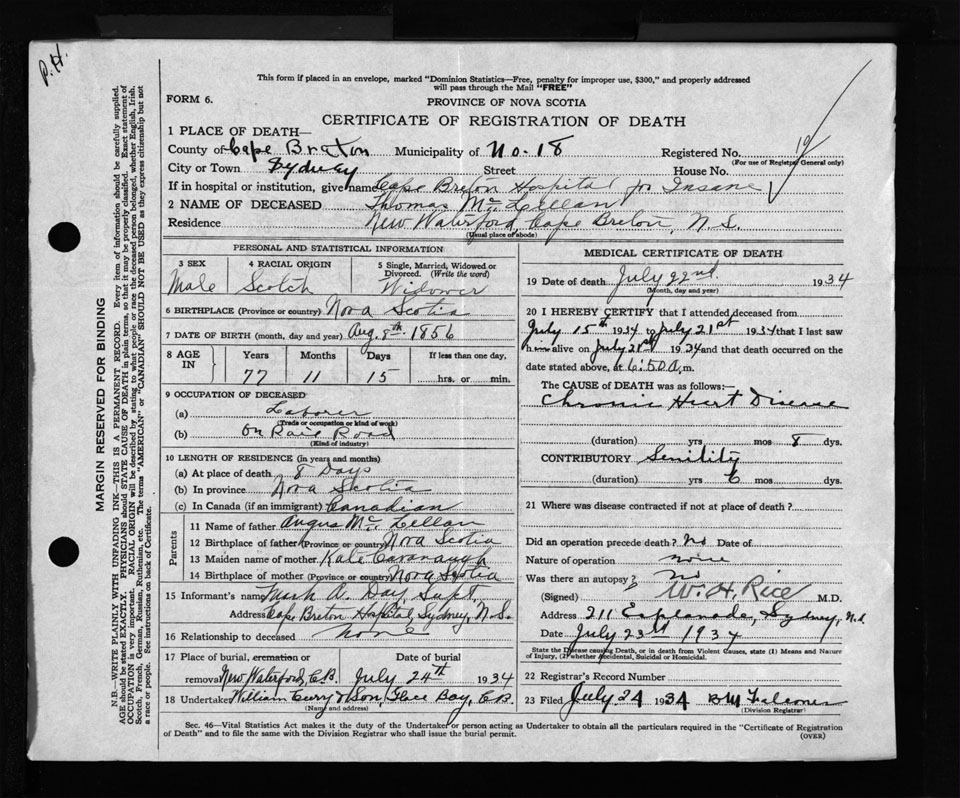 P.H.
This form if placed in an envelope, marked "Dominion Statistics—Free, penalty for improper use, $300," and properly addressed
will pass through the Mail "FREE"
FORM 6.
PROVINCE OF NOVA SCOTIA
CERTIFICATE OF REGISTRATION OF DEATH
1 PLACE OF DEATH—
County of Cape Breton Municipality of No. 18 Registered No. 19
(For use of Registrar General only)
City or Town Sydney Street House No.
If in hospital or institution, give name Cape Breton Hospital for Insane
2 NAME OF DECEASED Thomas Mc Lellan
Residence New Waterford, Cape Breton, N.S.
(Usual place of abode)
PERSONAL AND STATISTICAL INFORMATION
3 SEX Male
4 RACIAL ORIGIN Scotch
5 Single, Married, Widowed or Divorced. (Write the word) Widower
6 BIRTHPLACE (Province or country) Nova Scotia
7 DATE OF BIRTH (month, day and year) Aug. 8th 1856
8 AGE IN Years 77 Months 11 Days 15 If less than one day, hrs. or min.
9 OCCUPATION OF DECEASED
(a) Laborer
(Trade or occupation or kind of work)
(b) On Rail Road
(Kind of industry)
10 LENGTH OF RESIDENCE (in years and months)
(a) At place of death 8 Days
(b) In province Nova Scotia
(c) In Canada (if an immigrant) Canadian
Parents
11 Name of father Angus Mc Lellan
12 Birthplace of father (Province or country) Nova Scotia
13 Maiden name of mother Kate Cavanaugh
14 Birthplace of mother (Province or country) Nova Scotia
15 Informant's name A. Day, Supt.
Address Cape Breton Hospital, Sydney, N.S.
16 Relationship to deceased None
17 Place of burial, cremation or removal New Waterford, C.B. Date of burial July 24th 1934
18 Undertaker William Curry & Son, Glace Bay, C.B.
(Name and address)
MEDICAL CERTIFICATE OF DEATH
19 Date of death July 22nd. 1934
(Month, day and year)
20 I HEREBY CERTIFY that I attended deceased from
July 15th 1934 to July 21st 1934 that I last saw
him alive on July 21st 1934 and that death occurred on the
date stated above, at 6:50 a.m.
The CAUSE of DEATH was as follows:—
Chronic Heart Disease
(duration) yrs mos 8 dys.
CONTRIBUTORY Senility
(duration) yrs 6 dys.
21 Where was disease contracted if not at place of death?
Did an operation precede death? No Date of
Nature of operation none
Was there an autopsy? no
(Signed) W. H. Rice M.D.
Address 211 Esplanade, Sydney, N.S.
Date July 23rd 1934
State the Disease causing Death, or in death from Violent Causes, state (1) Means and Nature
of Injury, (2) whether Accidental, Suicidal or Homicidal.
22 Registrar's Record Number
23 Filed July 24 1934
(Division Registrar)
Sec. 46—Vital Statistics Act makes it the duty of the Undertaker or person acting as Undertaker to obtain all the particulars required in the "Certificate of Registration
of Death" and to file the same with the Division Registrar who shall issue the burial permit.
(OVER)
MARGIN RESERVED FOR BINDING
N.B.—WRITE PLAINLY WITH UNFADING INK—THIS IS A PERMANENT RECORD. Every item of information should be carefully supplied.
AGE should be stated EXACTLY. PHYSICIANS should STATE CAUSE OF DEATH in plain terms, so that it may be properly classified. Exact statement of
OCCUPATION is very important. RACIAL ORIGIN will be described by stating to what people or race the deceased person belonged, whether English, Irish,
Scotch, French, German, Russian, Ruthenian, etc. The terms "AMERICAN" or "CANADIAN" SHOULD NOT BE USED as they express citizenship but not
a race or people. See instructions on back of Certificate.